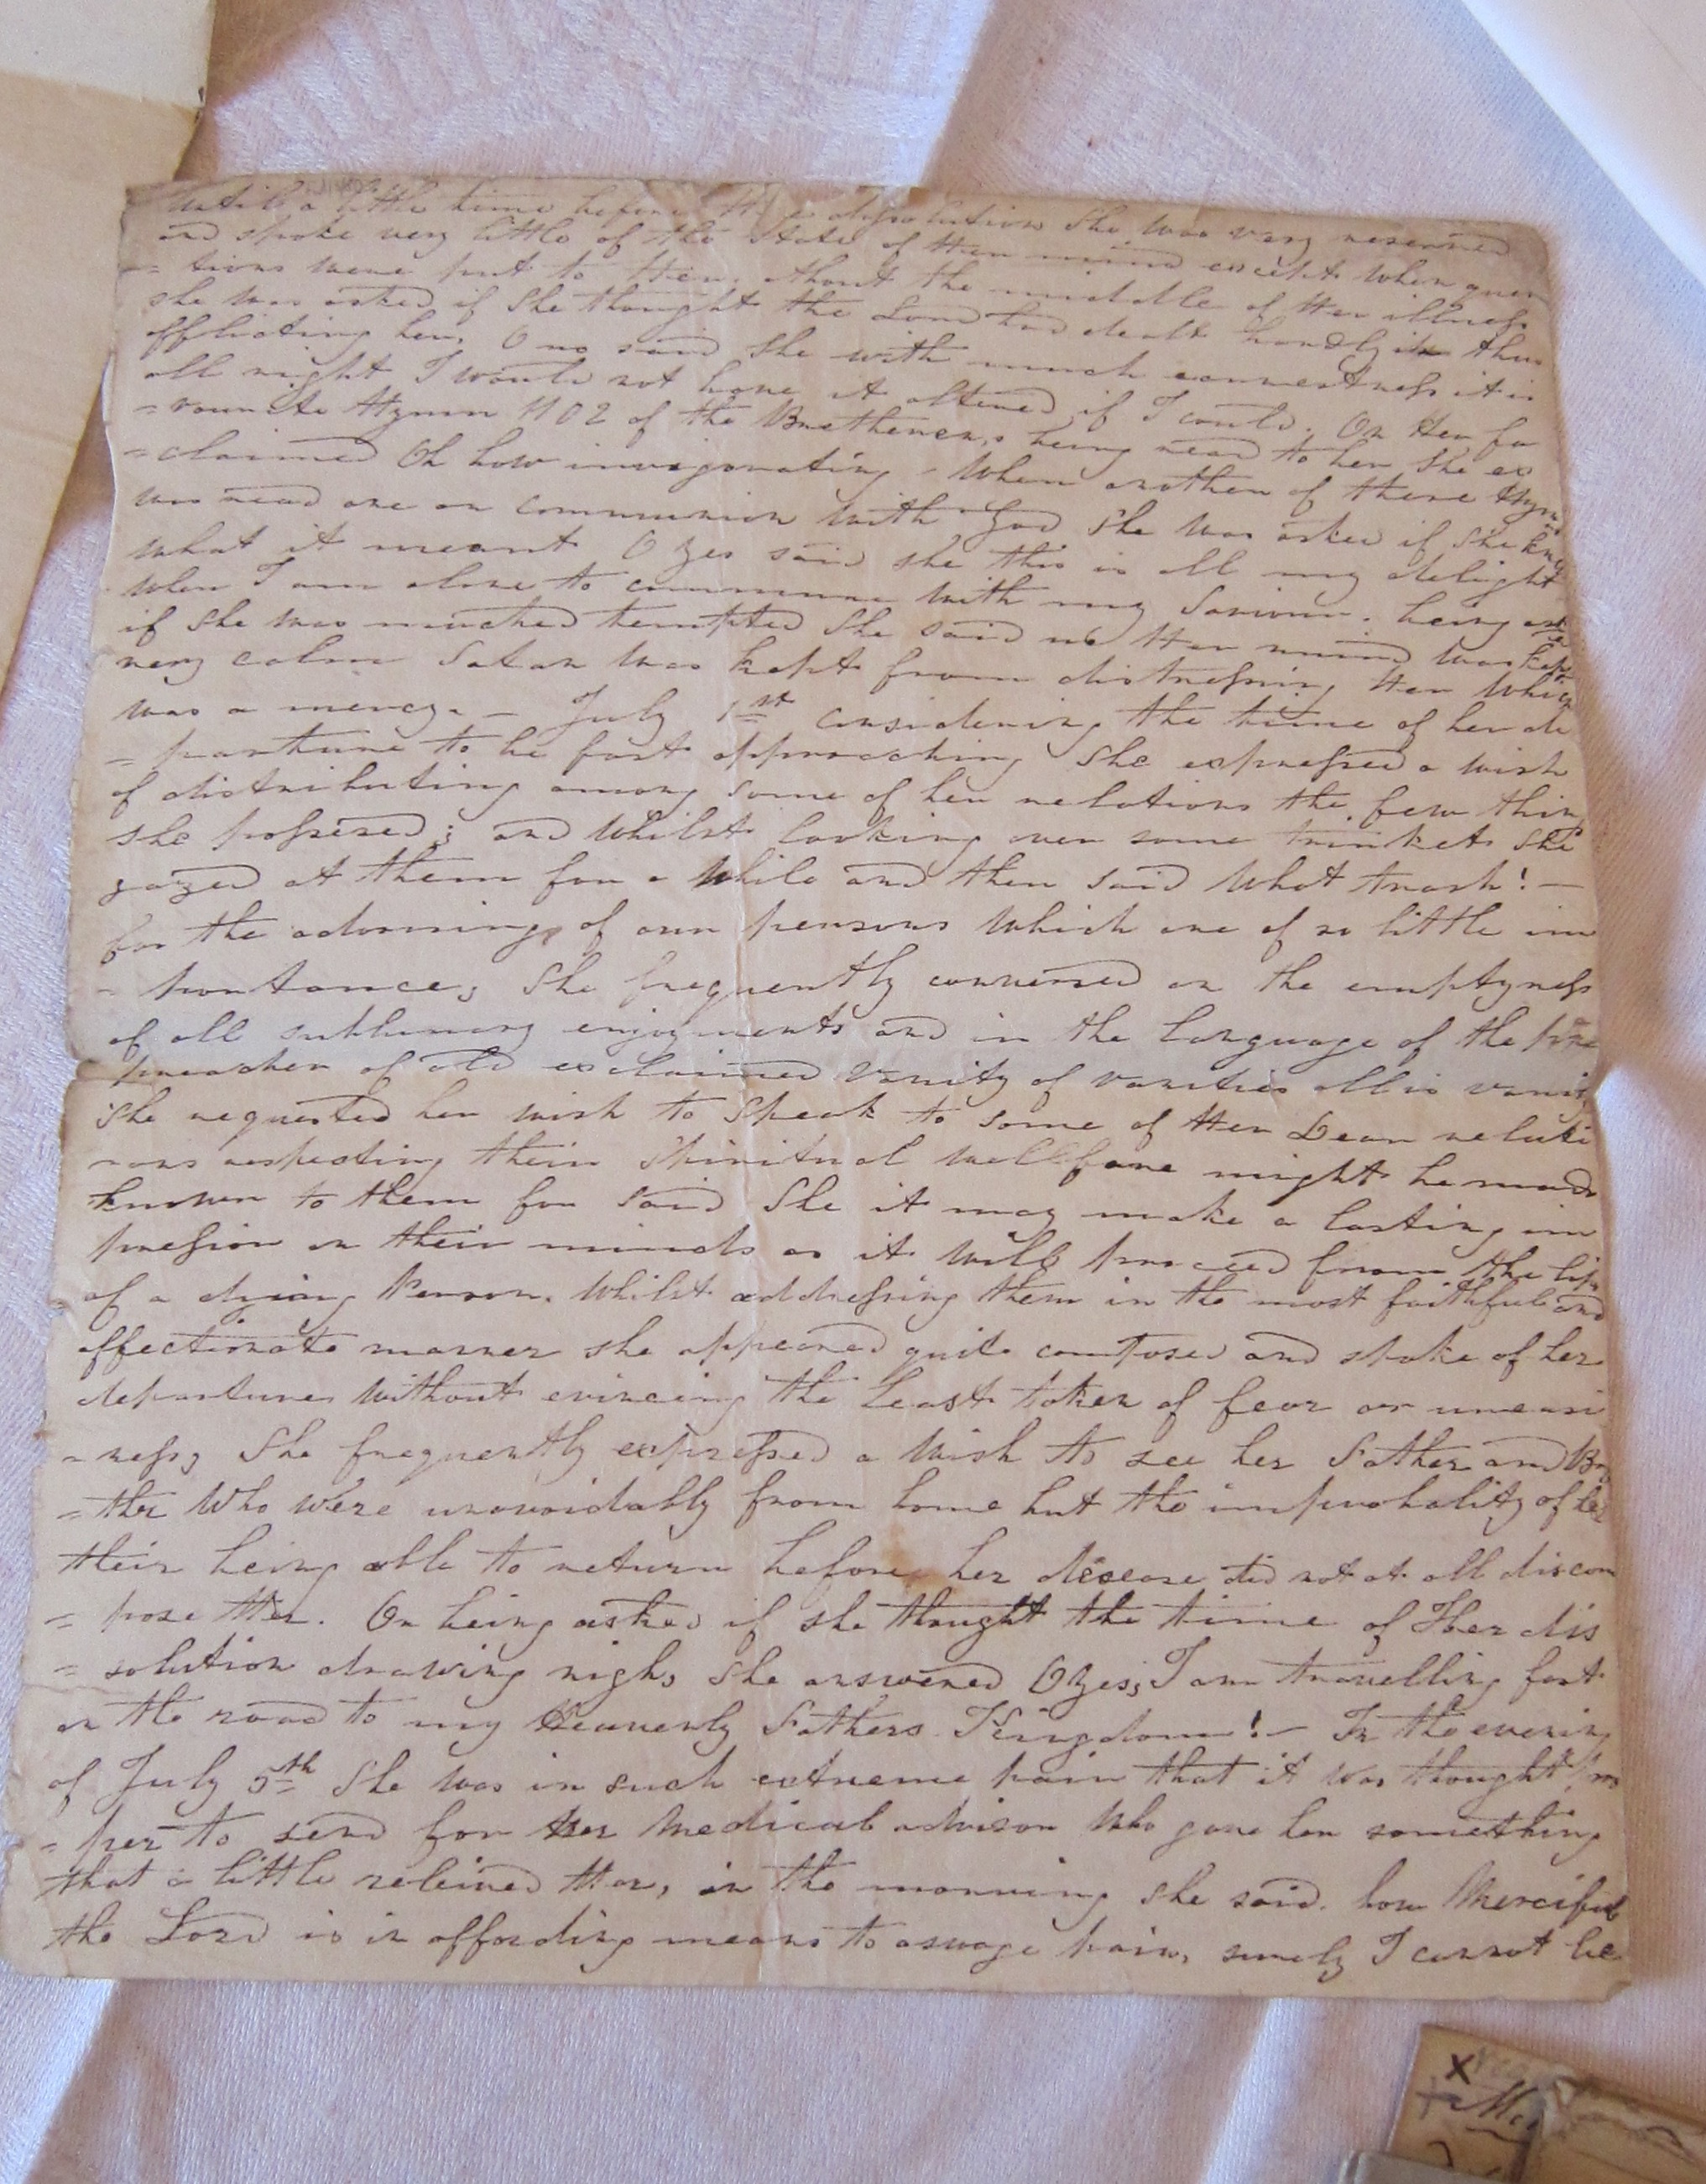 Until a little time before Her dissolution She was very reserved
and spoke very little of the State of Her mind except when ques
= tions were put to Her. About the middle of Her illness
she was asked if She thought the Lord had dealt hardly in thus
afflicting her, O no said She with much earnestness it is
all right I would not have it altered if I could. On Her fa
= vourite Hymn 1102 of the Bretheren,s being read to her She ex
= claimed Oh how invigorating - When another of these Hym
was read one on Communion With God She was asked if She knew
What it meant O yes said she this is all my delight
When I am alone to commune With my Saviour. being asked
if She was muched tempted She said no Her mind was kept
very calm Satan was kept from distressing Her Which
was a mercy. — July 1st Considering the time of her de
= parture to be fast approaching She expressed a wish
of distributing among some of her relations the few thin
she possesed; and Whilst looking over some trinkets She
gazed at them for a While and then said What trash! —
for the adorning of our persons Which are of so little im
= portance; She frequently conversed on the emptyness
of all sublunary enjoyments and in the language of the
preacher of old exclaimed Vanity of vanities all is vanity
She requested her wish to Speak to some of Her Dear relati
ons respecting their Spiritual wellfare might be made
known to them for said She it may make a lasting im
presion on their minds as it will proceed from the lips
of a dying Person. Whilst addressing them in the most faithful and
affectionate manner she appeared quite composed and spoke of her
departure Without evincing the Least token of fear or uneasi
= ness; She frequently expressed a Wish to see her Father and Bro
= ther Who Were unavoidably from home but the improbality of
their being able to return before her decease did not at all discom
= pose Her. On being asked if she thought the time of Her dis
= solution drawing nigh, She answered O yes; I am travelling fast
on the road to my Heavenly Fathers Kingdom! — In the evening
of July 5th She was in such extreme pain that it was thought pro
= per to send for Her Medical advisor Who gave her something
that a little releived Her, in the morning she said. how Merciful
the Lord is in affording means to aswage pain, surely I cannot be